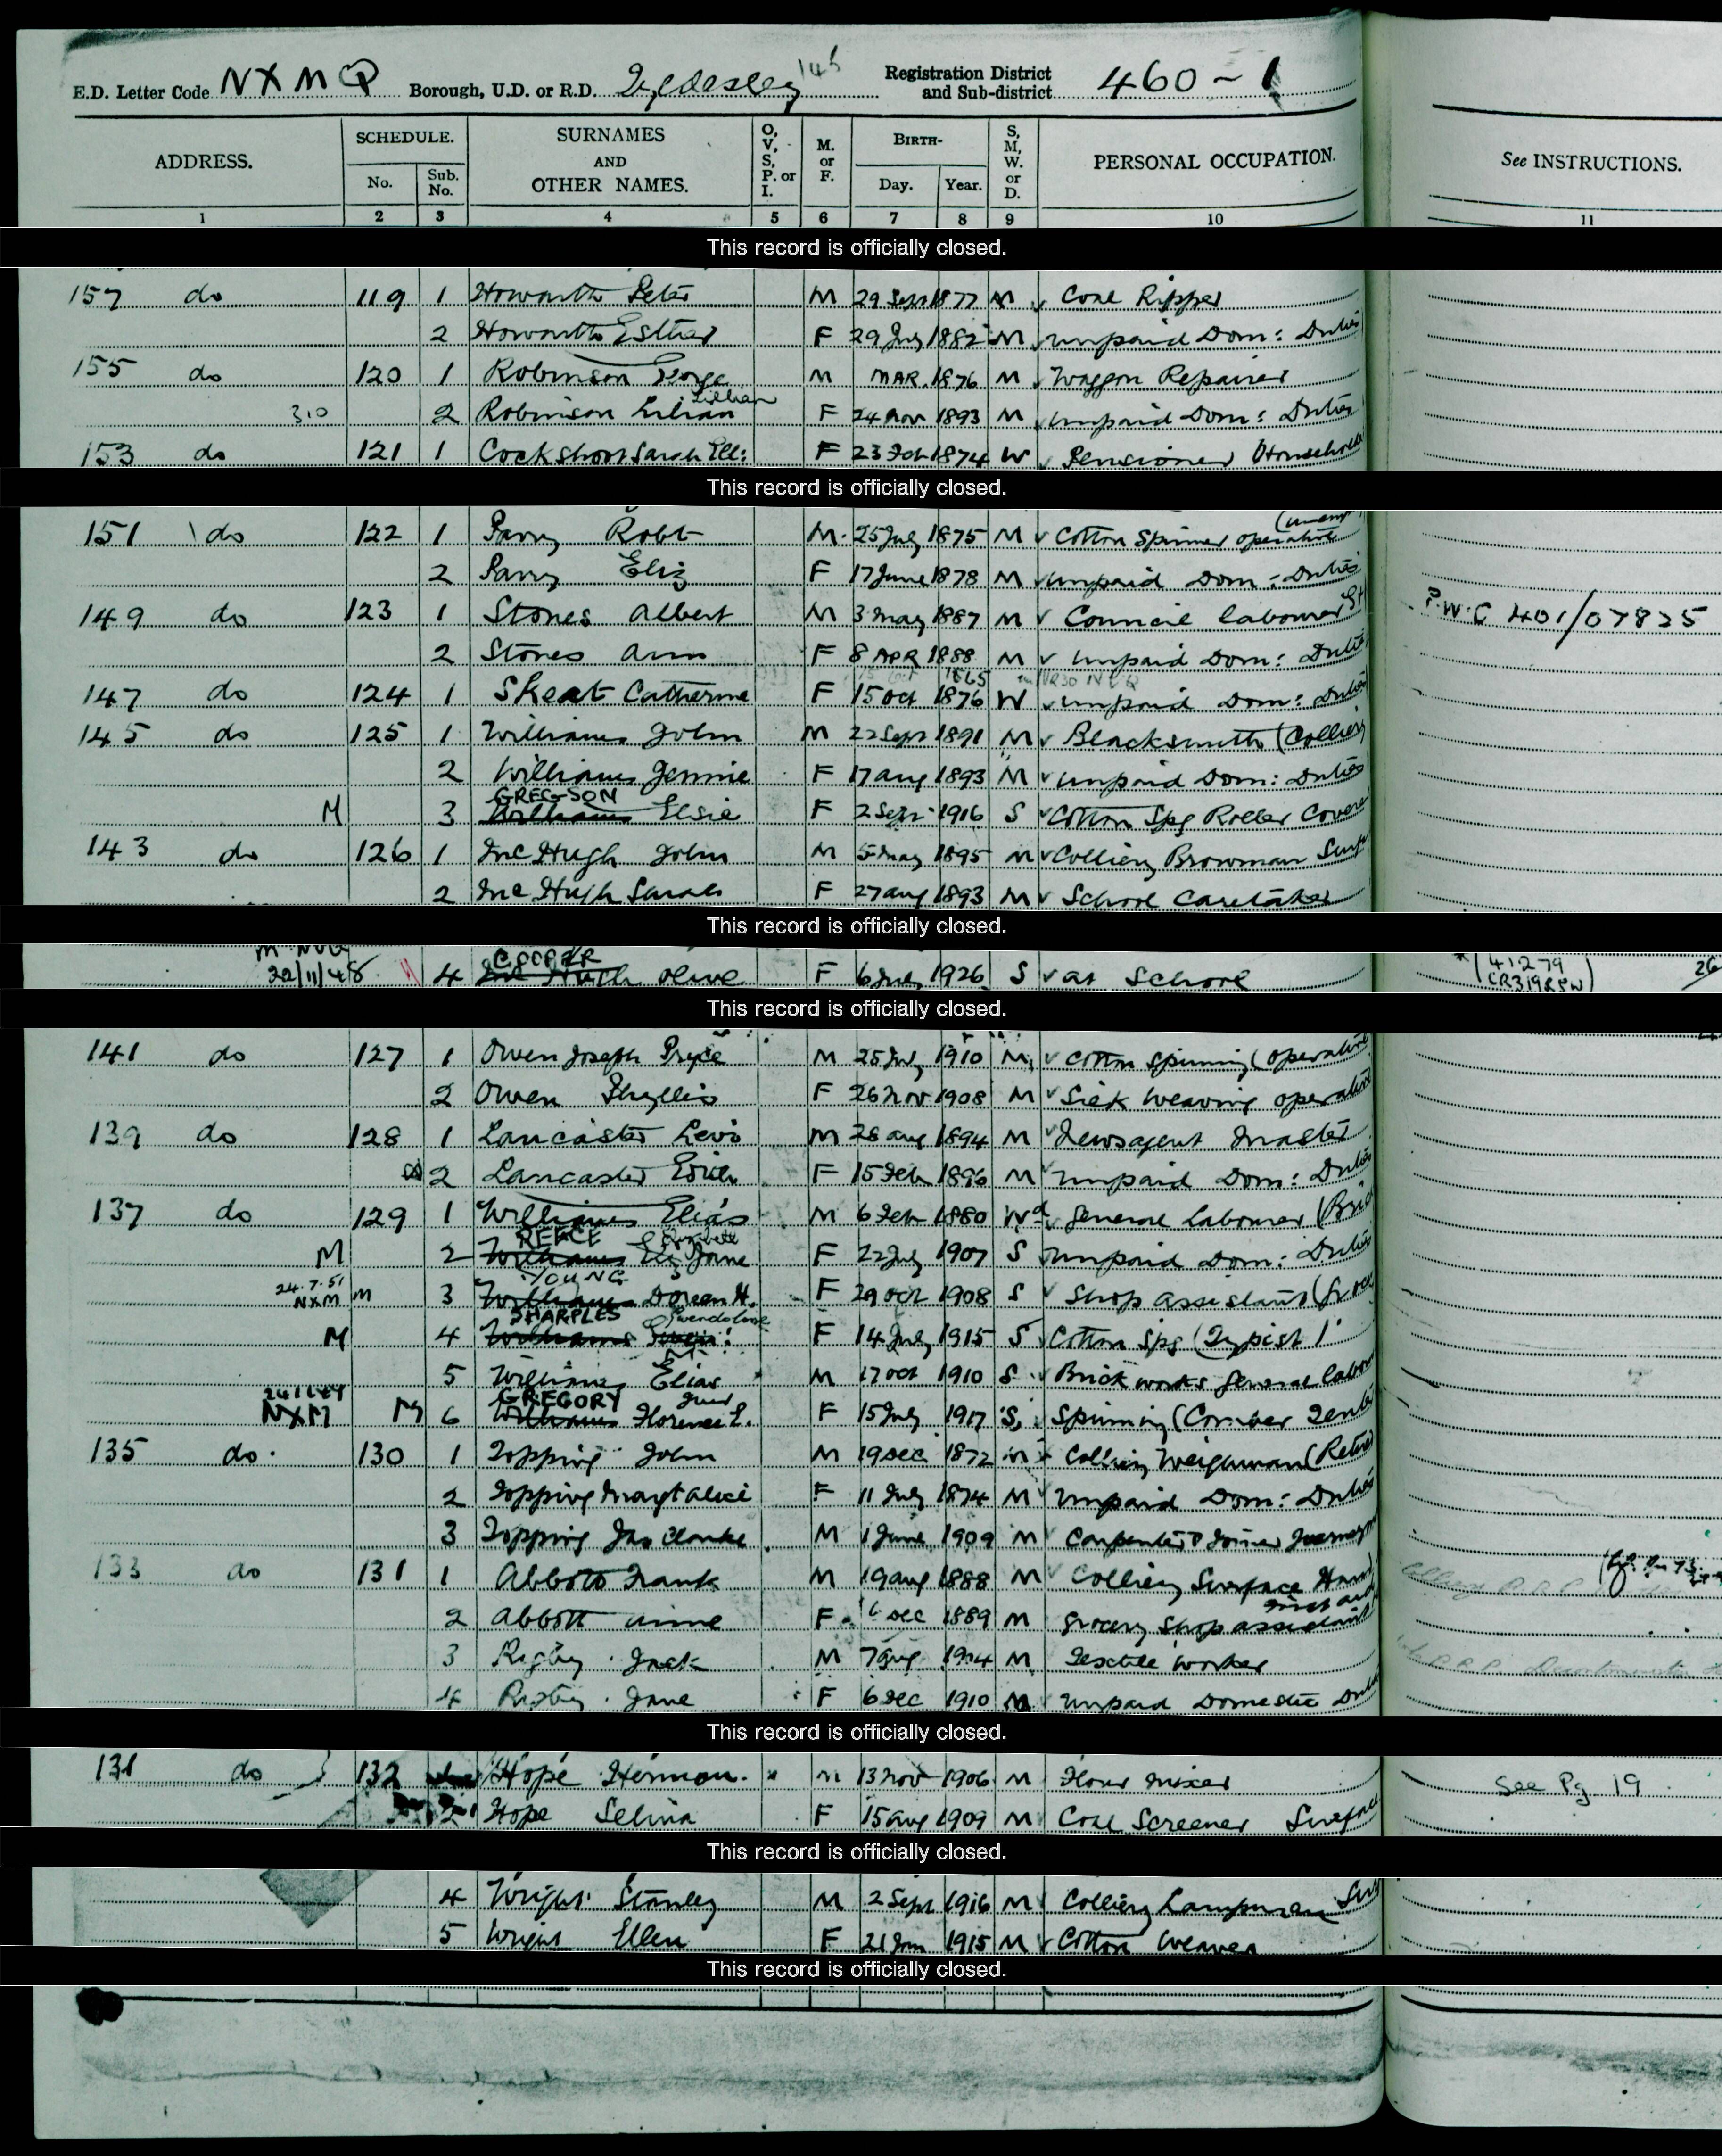 E.D. Letter Code NXMQ Borough, U.D. or R.D. Tyldesley 145 Registration District and Sub-district 460-1
ADDRESS. SCHEDULE. No. Sub. No. SURNAMES AND OTHER NAMES. O, V, S, P. or I. M. or F. BIRTH- Day. Year. S, M, W. or D. PERSONAL OCCUPATION. See INSTRUCTIONS.
1 2 3 4 5 6 7 8 9 10 11
This record is officially closed.
157 do 119 1 Howarth Peter M 29 Sept 1877 M Coal Ripper
2 Howarth Esther F 29 July 1882 M unpaid Dom: Duties
155 do 120 1 Robinson George M MAR. 1876 M Waggon Repairer
Lillian
310 2 Robinson Lilian F 24 Nov 1893 M Unpaid Dom: Duties
153 do 121 1 Cockshott Sarah Ell: F 23 Feb 1874 W Pensioner Household
This record is officially closed.
151 do 122 1 Parry Robt M 25 July 1875 M Cotton Spinner operative
2 Parry Eliz F 17 June 1878 M unpaid Dom: Duties
149 do 123 1 Stones Albert M 3 May 1887 M Council labourer P.W.C 401/07825
2 Stones Ann F 8 APR 1888 M unpaid Dom: Duties
147 do 124 1 Skeat Catherine F 15 Oct 1876 W unpaid Dom: Duties
145 do 125 1 Williams John M 22 Sept 1891 M Blacksmith (Colliery
2 Williams Jennie F 17 Aug 1893 M unpaid Dom: Duties
GREGSON
M 3 Williams Elsie F 2 Sept 1916 S Cotton Spg Roller Coverer
143 do 126 1 McHugh John M 5 May 1895 M Colliery Browman Surf
2 McHugh Sarah F 27 Aug 1893 M School Caretaker
This record is officially closed.
COOPER
22/11/48 4 McHugh Olive F 6 July 1926 S at School 41279 CR319 26
This record is officially closed.
141 do 127 1 Owen Joseph Pryce M 25 July 1910 M Cotton Spinning (operative
2 Owen Phyllis F 26 Nov 1908 M Silk Weaving operative
139 do 128 1 Lancaster Levi M 28 Aug 1894 M Newsagent Master
2 Lancaster Edith F 15 Feb 1896 M unpaid Dom: Duties
137 do 129 1 Williams Elias M 6 Feb 1880 Wd General Labourer (Bric
REECE Elizabeth
M 2 Williams Eliz Jane F 22 July 1907 S unpaid Dom: Duties
YOUNG
24.7.51 NXM M 3 Williams Doreen H. F 29 Oct 1908 S Shop assistant (Groc
SHARPLES Gwendoline
M 4 Williams Gwen: F 14 July 1915 S Cotton Spg (Typist)
5 Williams Elias M 17 Oct 1910 S Brickworks General labour
GREGORY
NXM M 6 Williams Florence L. F 15 July 1917 S Spinning (Comber Tenter
135 do 130 1 Topping John M 19 Dec 1872 M Colliery Weighman (Retired
2 Topping Margt Alice F 11 July 1874 M Unpaid Dom: Duties
3 Topping Jas Clarke M 1 June 1909 M Carpenter & Joiner Journeyman
133 do 131 1 Abbott Frank M 19 Aug 1888 M Colliery Surface Hand
2 Abbott Annie F 6 Dec 1889 M Grocery Shop assistant
3 Rigby Jack M 7 Aug 1904 M Textile worker
4 Rigby Jane F 6 Dec 1910 M Unpaid Domestic Duties
This record is officially closed.
131 do 132 Hope Herman M 13 Nov 1906 M Flour mixer See Pg 19
2 Hope Selina F 15 Aug 1909 M Coal Screener Surface
This record is officially closed.
4 Wright Stanley M 2 Sept 1916 M Colliery Lampman Surf
5 Wright Ellen F 21 Jan 1915 M Cotton Weaver
This record is officially closed.